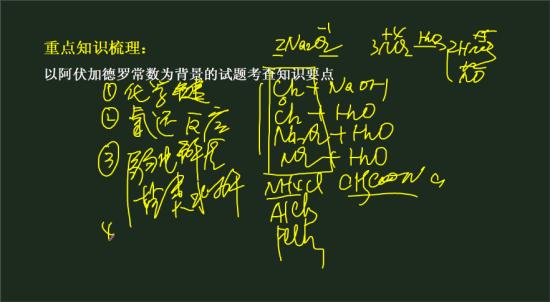 重点知识梳理：
以阿伏加德罗常数为背景的试题考查知识要点
① 化学键
② 氧还反应
③ 弱电解质
盐类水解
4
-1
2Na2O2
+4
3NO2 H2O 2HNO3
+5
NO
Cl2 + NaOH
Cl2 + H2O
Na2O2 + H2O
NO2 + H2O
NH4Cl
AlCl3
FeCl3